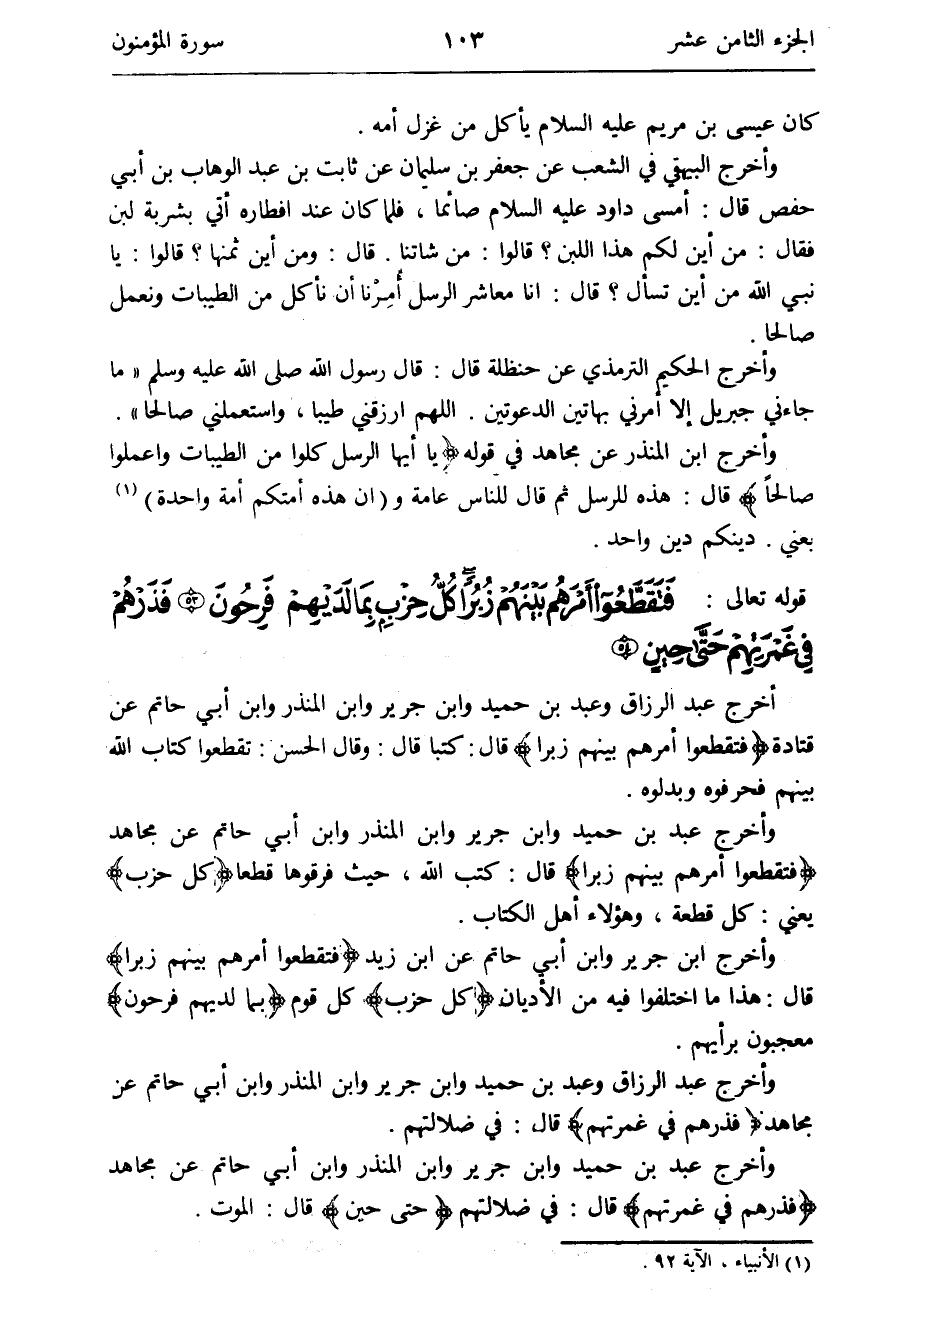 الجزء الثامن عشر ١٠٣ سورة المؤمنون
كان عيسى بن مريم عليه السلام يأكل من غزل أمه .
وأخرج البيهقي في الشعب عن جعفر بن سليمان عن ثابت بن عبد الوهاب بن أبي
حفص قال : أمسى داود عليه السلام صائما ، فلما كان عند افطاره أتي بشربة لبن
فقال : من أين لكم هذا اللبن ؟ قالوا : من شاتنا . قال : ومن أين ثمنها ؟ قالوا : يا
نبي الله من أين تسأل ؟ قال : انا معاشر الرسل أُمِرْنا أن نأكل من الطيبات ونعمل
صالحا .
وأخرج الحكيم الترمذي عن حنظلة قال : قال رسول الله صلى الله عليه وسلم « ما
جاءني جبريل إلا أمرني بهاتين الدعوتين . اللهم ارزقني طيبا ، واستعملني صالحا » .
وأخرج ابن المنذر عن مجاهد في قوله ﴿ يا أيها الرسل كلوا من الطيبات واعملوا
صالحاً ﴾ قال : هذه للرسل ثم قال للناس عامة و ( ان هذه أمتكم أمة واحدة ) (١)
يعني . دينكم دين واحد .
قوله تعالى : فَتَقَطَّعُوٓا۟ أَمْرَهُم بَيْنَهُمْ زُبُرًۭا ۖ كُلُّ حِزْبٍۭ بِمَا لَدَيْهِمْ فَرِحُونَ ٥٣ فَذَرْهُمْ
فِي غَمْرَتِهِمْ حَتَّىٰ حِينٍ ٥٤
أخرج عبد الرزاق وعبد بن حميد وابن جرير وابن المنذر وابن أبي حاتم عن
قتادة ﴿ فتقطعوا أمرهم بينهم زبرا ﴾ قال : كتبا قال : وقال الحسن : تقطعوا كتاب الله
بينهم فحرفوه وبدلوه .
وأخرج عبد بن حميد وابن جرير وابن المنذر وابن أبي حاتم عن مجاهد
﴿ فتقطعوا أمرهم بينهم زبرا ﴾ قال : كتب الله ، حيث فرقوها قطعا ﴿ كل حزب ﴾
يعني : كل قطعة ، وهؤلاء أهل الكتاب .
وأخرج ابن جرير وابن أبي حاتم عن ابن زيد ﴿ فتقطعوا أمرهم بينهم زبرا ﴾
قال : هذا ما اختلفوا فيه من الأديان ﴿ كل حزب ﴾ كل قوم ﴿ بما لديهم فرحون ﴾
معجبون برأيهم .
وأخرج عبد الرزاق وعبد بن حميد وابن جرير وابن المنذر وابن أبي حاتم عن
مجاهد ﴿ فذرهم في غمرتهم ﴾ قال : في ضلالتهم .
وأخرج عبد بن حميد وابن جرير وابن المنذر وابن أبي حاتم عن مجاهد
﴿ فذرهم في غمرتهم ﴾ قال : في ضلالتهم ﴿ حتى حين ﴾ قال : الموت .
(١) الأنبياء ، الآية ٩٢ .